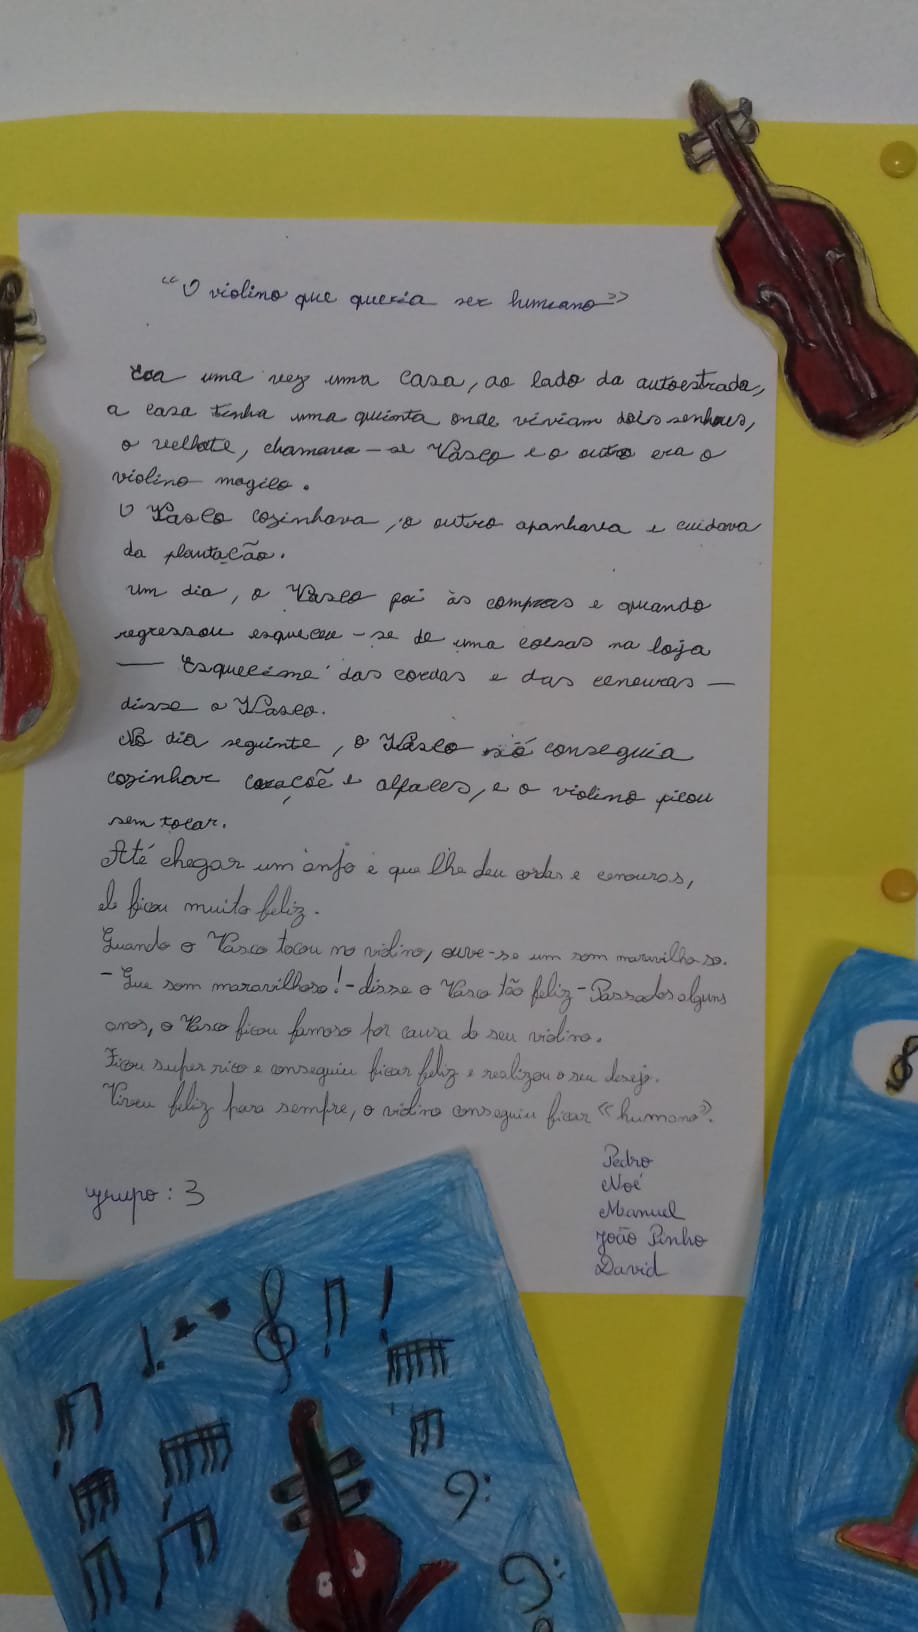 “O violino que queria ser humano”
Era uma vez uma casa, ao lado da autoestrada,
a casa tinha uma quinta onde viviam dois senhores,
o velhote, chamava-se Vasco e o outro era o
violino magico.
O Vasco cozinhava, o outro apanhava e cuidava
da plantação.
Um dia, o Vasco foi às compras e quando
regressou esqueceu-se de uma coisas na loja
— Esquecime das cordas e das cenouras —
disse o Vasco.
No dia seguinte, o Vasco só conseguia
cozinhar coraçõe e alfaces, e o violino ficou
sem tocar.
Até chegar um anjo é que lhe deu cordas e cenouras,
ele ficou muito feliz.
Quando o Vasco tocou no violino, ouve-se um som maravilhoso.
- Que som maravilhoso! - disse o Vasco tão feliz - Passados alguns
anos, o Vasco ficou famoso por causa do seu violino.
Ficou super rico e conseguiu ficar feliz e realizou o seu desejo.
Viveu feliz para sempre, o violino conseguiu ficar «humano».
Pedro
Noé
Manuel
João Pinho
David
grupo: 3